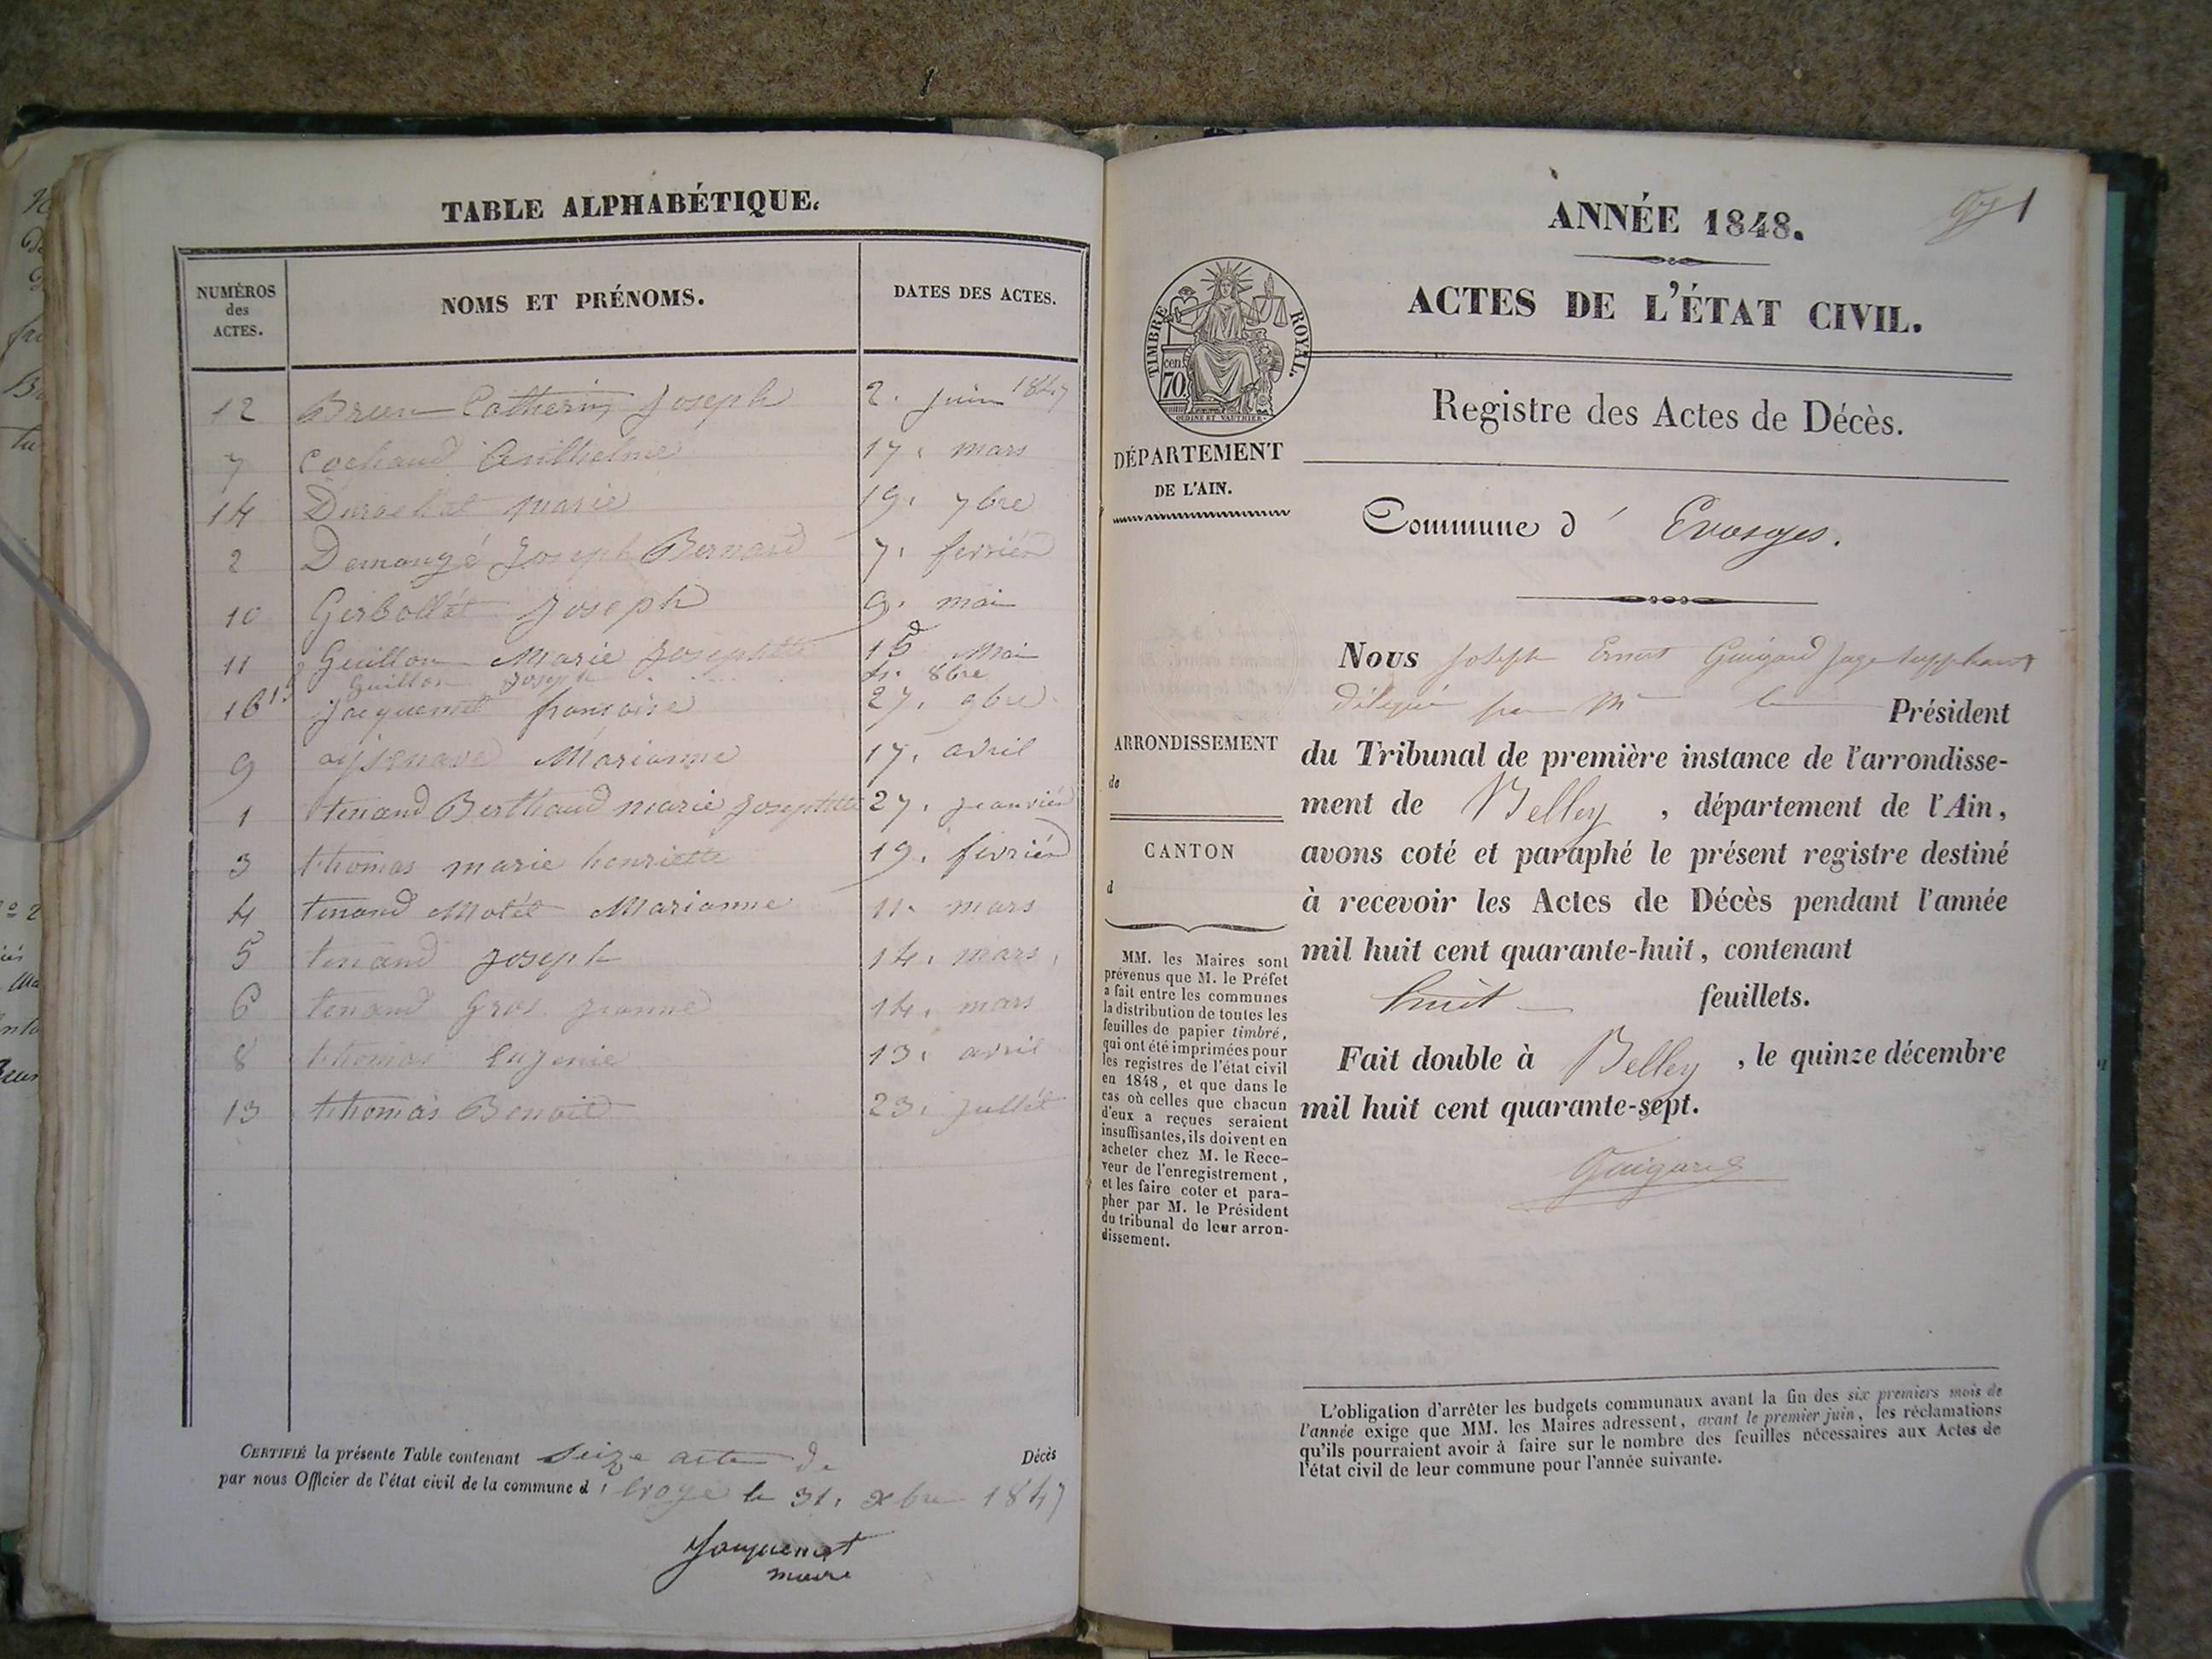 TABLE ALPHABÉTIQUE.
NUMÉROS
des
ACTES.
NOMS ET PRÉNOMS.
DATES DES ACTES.
12 Brun Catherin Joseph 2. juin 1847
7 Cochaud 17. mars
14 marie 19. 7bre
2 Demougé Joseph Bernard 7. fevrier
10 Gerbollét Joseph 9. mai
11 Guillon Marie Josephtte 15 Mai
Guillon Joseph 8bre
16 Jacquemet francoise 27. 9bre
9 Marianne 17. avril
1 tenand Berthaud marie Josephtte 27. Jeanvier
3 thomas marie henriette 19. fevrier
4 tenand Motét Marianne 11. mars
5 tenand Joseph 14. mars
6 tenand Gros jeanne 14. mars
8 thomas Eugenie 13. avril
13 thomas Benoit 23. Jullét
CERTIFIÉ la présente Table contenant Seize actes de Décès
par nous Officier de l'état civil de la commune d' le 31. xbre 1847
Jacquemet
maire
1
ANNÉE 1848.
ACTES DE L'ÉTAT CIVIL.
TIMBRE ROYAL.
cen.
70
OUDINE ET VAUTHIER
Registre des Actes de Décès.
DÉPARTEMENT
DE L'AIN.
Commune d' Evosges.
ARRONDISSEMENT
de
CANTON
d
MM. les Maires sont
prévenus que M. le Préfet
a fait entre les communes
la distribution de toutes les
feuilles de papier timbré,
qui ont été imprimées pour
les registres de l'état civil
en 1848, et que dans le
cas où celles que chacun
d'eux a reçues seraient
insuffisantes, ils doivent en
acheter chez M. le Rece-
veur de l'enregistrement,
et les faire coter et para-
pher par M. le Président
du tribunal de leur arron-
dissement.
Nous Joseph Ernest Guigard Juge suppléant
délégué par Mr le Président
du Tribunal de première instance de l'arrondisse-
ment de Belley , département de l'Ain,
avons coté et paraphé le présent registre destiné
à recevoir les Actes de Décès pendant l'année
mil huit cent quarante-huit, contenant
huit feuillets.
Fait double à Belley , le quinze décembre
mil huit cent quarante-sept.
Guigard
L'obligation d'arrêter les budgets communaux avant la fin des six premiers mois de
l'année exige que MM. les Maires adressent, avant le premier juin, les réclamations
qu'ils pourraient avoir à faire sur le nombre des feuilles nécessaires aux Actes de
l'état civil de leur commune pour l'année suivante.